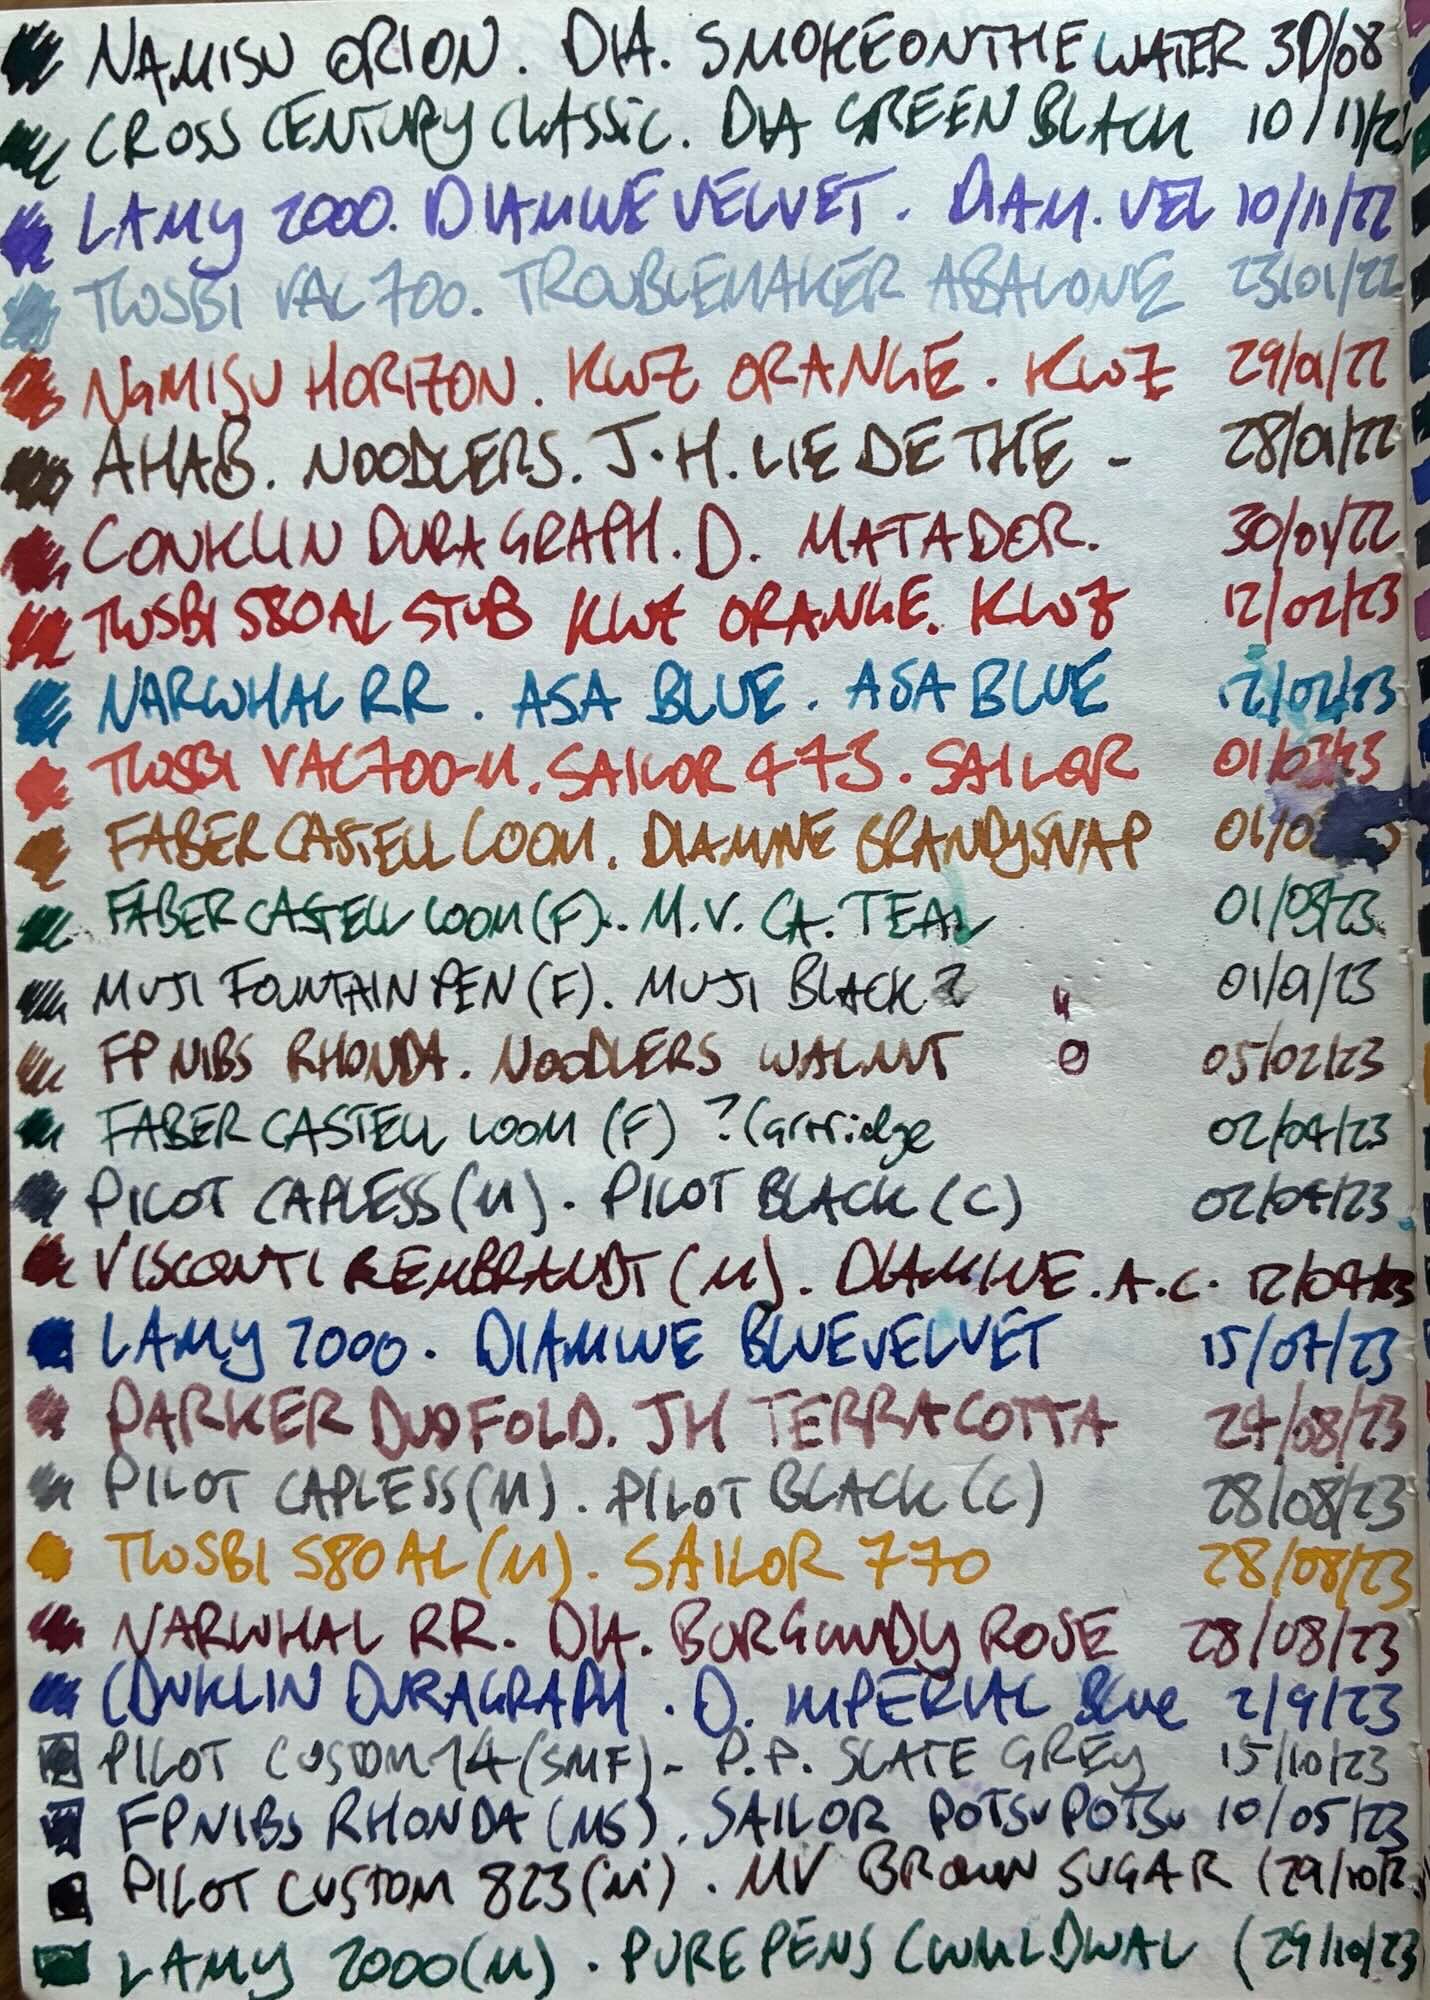 NAMISU ORION. DIA. SMOKEONTHE WATER 30/08
CROSS CENTURY CLASSIC. DIA GREEN BLACK 10/11/2
LAMY 2000. DIAMINE VELVET. DIAM. VEL 10/11/22
TWSBI VAC 700. TROUBLEMAKER ABALONE 23/01/22
NAMISU HORIZON. KWZ ORANGE. KWZ 29/01/22
AHAB. NOODLERS. J.H. LIE DE THE - 28/01/22
CONKLIN DURAGRAPH. D. MATADOR. 30/01/22
TWSBI 580AL STUB KWZ ORANGE. KWZ 12/02/23
NARWHAL RR. ASA BLUE. ASA BLUE 12/02/23
TWSBI VAC700-M. SAILOR 473. SAILOR 01/03/23
FABER CASTELL LOOM. DIAMINE BRANDYSNAP
FABER CASTELL LOOM (F). M.V. CA. TEAL
MUJI FOUNTAIN PEN (F). MUJI BLACK ? 01/01/23
FP NIBS RHONDA. NOODLERS WALNUT 05/02/23
FABER CASTELL LOOM (F) ? Cartridge 02/04/23
PILOT CAPLESS (M). PILOT BLACK (C) 02/04/23
VISCONTI REMBRANDT (M). DIAMINE. A.C. 12/04/23
LAMY 2000. DIAMINE BLUEVELVET 15/07/23
PARKER DUOFOLD. JH TERRACOTTA 24/08/23
PILOT CAPLESS (M). PILOT BLACK (C) 28/08/23
TWSBI 580 AL (M). SAILOR 770 28/08/23
NARWHAL RR. DIA. BURGUNDY ROSE 28/08/23
CONKLIN DURAGRAPH. D. IMPERIAL Blue 2/9/23
PILOT CUSTOM 74 (SMF) - P.P. SLATE GREY 15/10/23
FPNIBS RHONDA (MS). SAILOR POTSUPOTSU 10/05/23
PILOT CUSTOM 823 (M). MV BROWN SUGAR (29/10/2
LAMY 2000 (M). PUREPENS CWMLDWAL (29/10/23